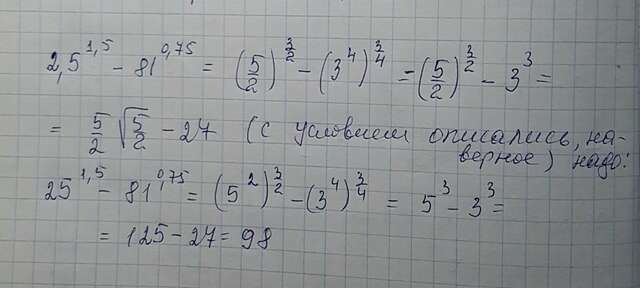 2,5^1,5 − 81^0,75 = (5/2)^3/2 − (3^4)^3/4 = (5/2)^3/2 − 3^3 =
= 5/2 √5/2 − 27 (с условием описались, на-
верное) надо:
25^1,5 − 81^0,75 = (5^2)^3/2 − (3^4)^3/4 = 5^3 − 3^3 =
= 125 − 27 = 98